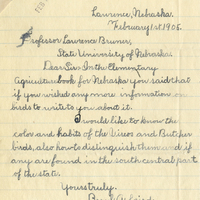 Lawrence, Nebraska.
February 1st 1905.
Professor Lawrence Bruner,
State University of Nebraska
Dear Sir:- In the Elementary
Agriculture book for Nebraska You said that
if you wished any more information on
birds to write to you about it.
I would like to know the
color and habits of the Vireos and Butcher
birds, also how to distinguish them and if
any are found in the south central part
of the state.
Yours truly.